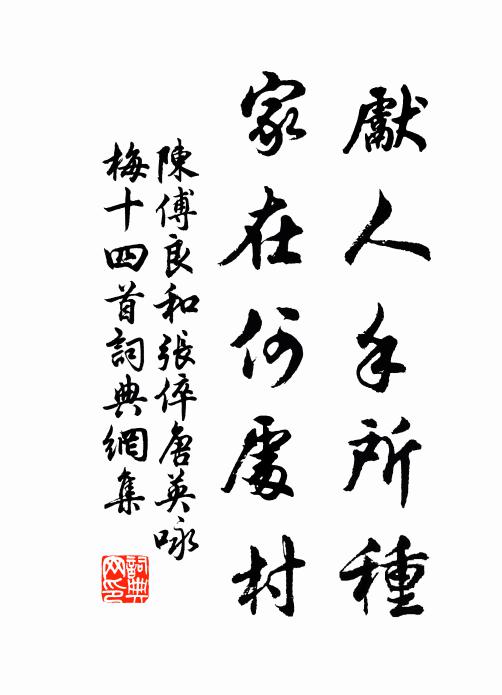 獻人手所種
家在何處村
陳傅良和張倅唐英咏
梅十四首詞典網集
詞典網印